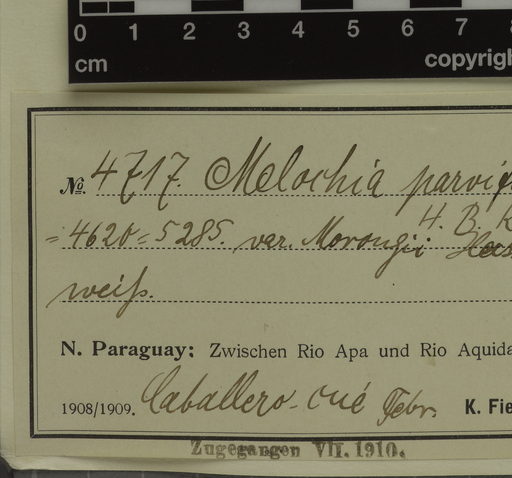 0 1 2 3 4 5 6 7
cm copyrigh
No. 4717. Melochia parvif
H. B. K
= 4620 = 5285. var. Morongii
weiß.
N. Paraguay: Zwischen Rio Apa und Rio Aquida
1908/1909. Caballero-cué Febr. K. Fie
Zugegangen VII. 1910.